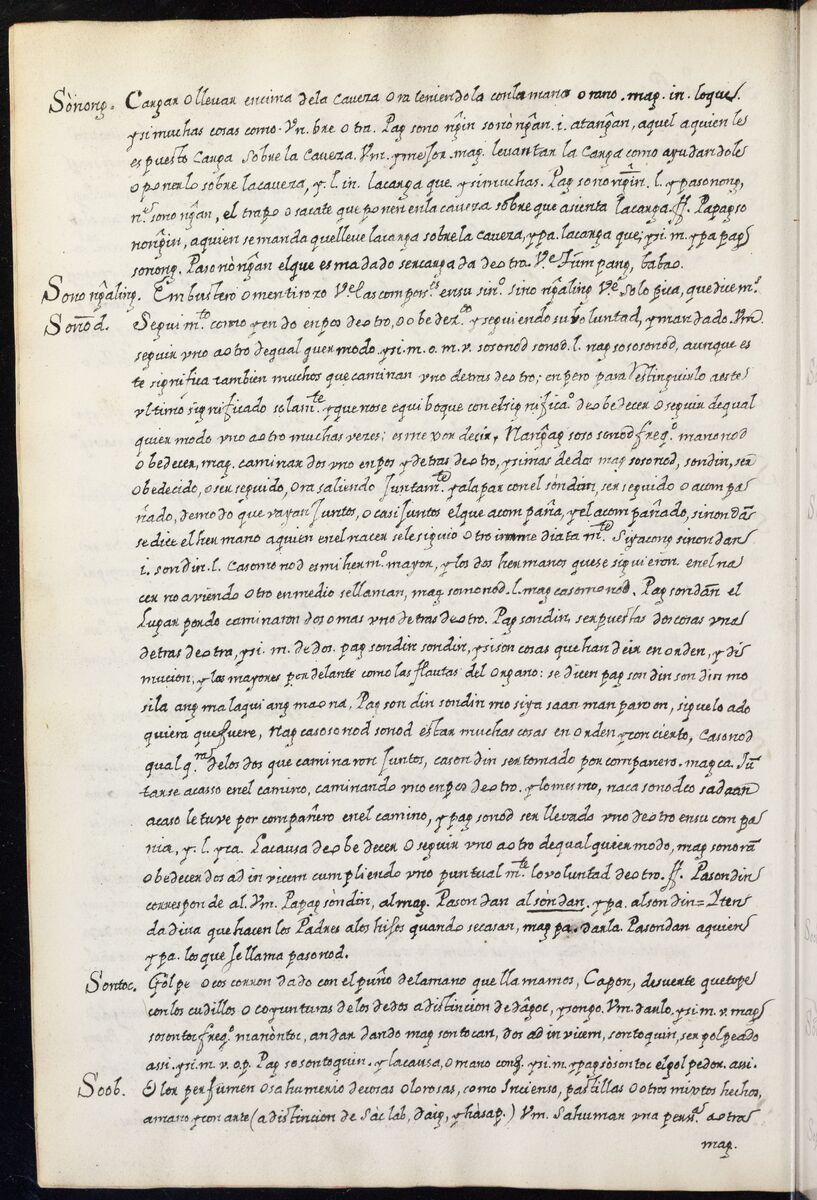 Sònong. Cargar o llevar encima de la caveza ora teniendola con la mano o rano. mag. in. loque/.
y si muchas cosas como. Vn. bre otra. Pag sono ng̃in sonòng̃an. i. atang̃an, aquel a quien le
es puesto Carga sobre la caveza. Vm. y mejor. mag. levantar la Carga como ayudandole
o ponerlo sobre la caveza, y. l. in. la carga que. y si muchas. Pag sonong̃in. l. y pasonong,
n.º sonong̃an, el trapo o sacate que ponen en la caveza sobre que asienta la carga. ff. Papagso
nong̃in, a quien se manda que lleve la carga sobre la caveza, y pa. la carga que; y si. m. y pa pag
sonong. Pasonòng̃an el que es ma dado ser carga da de otro. V.e Túmpang, babao.
Sonong̃aling. Embustero o mentirozo V.e las compos.es en su sin.º sinong̃aling V.e Solopica, que dice m.º
Sonod. Seguim.to como yendo en pos de otro, o obeder.to y seguiendo su voluntad, y mandado. Vm.
seguir vno a otro de qual quer modo y si. m. o. m. v. sosonod sonod. l. nag sososonod, aunque es
te significa tambien muchos que caminan vno detras de otro; en pero para destinguirlo a este
vltimo significado solam.te y que no se equiboque con el significa.º de obedecer o seguir de qual
quier modo vno a otro muchas vezes; es mejor decir, Nang̃ag soso sonod freq.º manonod
obedecer, mag. caminar dos vno en pos y detras de otro, y si mas de dos mag sosonod, sondin, ser
obedecido, o ser seguido, ora saliendo Juntam.te y a la par con el sondin, ser seguido o acompa
ñado, de modo que vayan Juntos, o casi Juntos el que acompaña, y el acompañado, sinondan
se dice el hermano a quien en el nacer sele siguio otro inme diata m.te Siya cong sinondan
i. sondin. l. Casomonod es mi herm.º mayor, y los dos hermanos que se siguieron. en el na
cer no aviendo otro en medio se llaman, mag somonod. l. mag casomonod. Pag sondan el
Lugar por do caminaron dos o mas vno detras de otro. Pag sondin, ser puestas dos cosas vna
detras de otra, y si. m. de dos. pag sondin sondin, y si son cosas que han de ir en orden, y dis
minucion, y las mayores por delante como las flautas del Organo: se dicen pag son din son din mo
sila ang malaqui ang maona, Pag son din sondin mo siya saan man paroon, siguelo a do
quiera que fuere, Nag casosonod sonod estar muchas cosas en orden y concierto, Casonod
qual q.ra de los dos que caminaron Juntos, casondin ser tomado por compañero. mag ca. Jun
tarse acasso en el camino, caminando vno en pos de otro. y lo mesmo, naca sonodco sadaan
acaso le tuve por compañero en el camino, y pag sonod ser llevado vno de otro en su compa
nia, y. l. yca. La causa de obedecer o seguir vno a otro de qual quier modo, mag sonoran
obedecer dos ad in vicem cumpliendo vno puntual m.te lo voluntad de otro. ff. Pasondin
corresponde al. Vm. Papag sòndin, al mag. Pason dan al sòndan. y pa. al sondin = Yten
dadiva que hacen los Padres a los hijos quando se casan, mag pa. darla. Pasondan a quien
y pa. los que se llama pasonod.
Sontoc. Golpe o coscorron dado con el puño de la mano que llamamos, Capon, desuerte que tope
con los cudillos o coyunturas de los dedos a distincion de dágoc, y songo. Vm. darlo. y si. m. v. mag
sosontoc freq.º manòntoc, andar dando mag sontocan, dos ad in vicem, sontoquin, ser golpeado
assi. y si. m. v. o. p. Pag sosontoquin. y la causa, o mano con q. y si. m. y pag sòsontoc el golpedor. assi.
Soob. Olor perfumen o sahumerio de cosas olorosas, como Incienso, pastillas o otros mixtos hechos,
a mano y con arte (a distincion de Sàclab, daig, y hàsap.) Vm. Sahumar vna pers.ª a otra
mag.